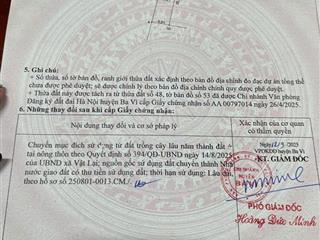 5. Ghi chú:
+ Số thửa, số tờ bản đồ, ranh giới thửa đất xác định theo bản đồ địa chính đo đạc dự án tổng thể
chưa được phê duyệt; sẽ được chỉnh lý theo bản đồ địa chính chính quy được phê duyệt.
+ Thửa đất này được tách ra từ thửa đất số 48, tờ bản đồ số 53 đã được Chi nhánh Văn phòng
Đăng ký đất đai Hà Nội huyện Ba Vì cấp Giấy chứng nhận số AA 00797014 ngày 26/4/2025.
6. Những thay đổi sau khi cấp Giấy chứng nhận:
Nội dung thay đổi và cơ sở pháp lý
Xác nhận của cơ quan
có thẩm quyền
Chuyển mục đích sử dụng từ đất trồng cây lâu năm thành đất ở
tại nông thôn theo Quyết định số 394/QĐ-UBND ngày 14/8/2025
của UBND xã Vật Lại; nguồn gốc sử dụng đất chuyển thành Nhà
nước giao đất có thu tiền sử dụng đất; thời hạn sử dụng: Lâu dài,
theo hồ sơ số 250801-0013.CM./.
VPĐKĐĐ huyện Ba Vì
KT. GIÁM ĐỐC
PHÓ GIÁM ĐỐC
Hoàng Đức Minh